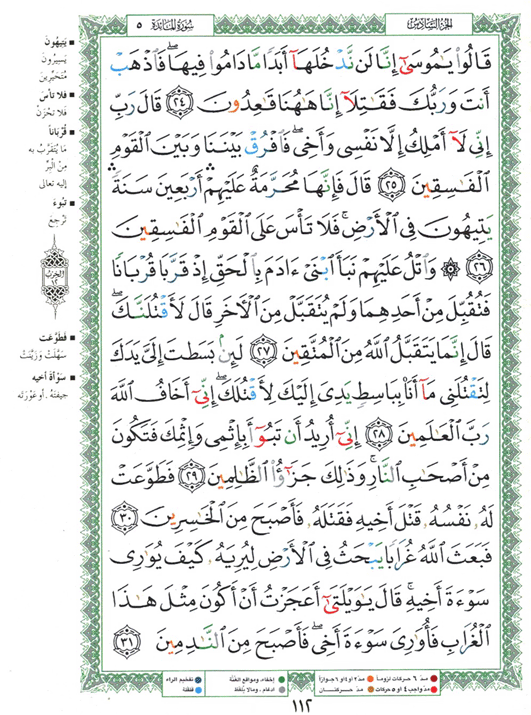 الجزء السادس
سورة المائدة ٥
قَالُوا۟ يَٰمُوسَىٰٓ إِنَّا لَن نَّدْخُلَهَآ أَبَدًا مَّا دَامُوا۟ فِيهَا فَٱذْهَبْ
أَنتَ وَرَبُّكَ فَقَٰتِلَآ إِنَّا هَٰهُنَا قَٰعِدُونَ ٢٤ قَالَ رَبِّ
إِنِّى لَآ أَمْلِكُ إِلَّا نَفْسِى وَأَخِى ۖ فَٱفْرُقْ بَيْنَنَا وَبَيْنَ ٱلْقَوْمِ
ٱلْفَٰسِقِينَ ٢٥ قَالَ فَإِنَّهَا مُحَرَّمَةٌ عَلَيْهِمْ ۛ أَرْبَعِينَ سَنَةً ۛ
يَتِيهُونَ فِى ٱلْأَرْضِ ۚ فَلَا تَأْسَ عَلَى ٱلْقَوْمِ ٱلْفَٰسِقِينَ
٢٦ ۞ وَٱتْلُ عَلَيْهِمْ نَبَأَ ٱبْنَىْ ءَادَمَ بِٱلْحَقِّ إِذْ قَرَّبَا قُرْبَانًا
فَتُقُبِّلَ مِنْ أَحَدِهِمَا وَلَمْ يُتَقَبَّلْ مِنَ ٱلْءَاخَرِ قَالَ لَأَقْتُلَنَّكَ ۖ
قَالَ إِنَّمَا يَتَقَبَّلُ ٱللَّهُ مِنَ ٱلْمُتَّقِينَ ٢٧ لَئِنۢ بَسَطتَ إِلَىَّ يَدَكَ
لِتَقْتُلَنِى مَآ أَنَا۠ بِبَاسِطٍ يَدِىَ إِلَيْكَ لِأَقْتُلَكَ ۖ إِنِّىٓ أَخَافُ ٱللَّهَ
رَبَّ ٱلْعَٰلَمِينَ ٢٨ إِنِّىٓ أُرِيدُ أَن تَبُوٓأَ بِإِثْمِى وَإِثْمِكَ فَتَكُونَ
مِنْ أَصْحَٰبِ ٱلنَّارِ ۚ وَذَٰلِكَ جَزَٰٓؤُا۟ ٱلظَّٰلِمِينَ ٢٩ فَطَوَّعَتْ
لَهُۥ نَفْسُهُۥ قَتْلَ أَخِيهِ فَقَتَلَهُۥ فَأَصْبَحَ مِنَ ٱلْخَٰسِرِينَ ٣٠
فَبَعَثَ ٱللَّهُ غُرَابًا يَبْحَثُ فِى ٱلْأَرْضِ لِيُرِيَهُۥ كَيْفَ يُوَٰرِى
سَوْءَةَ أَخِيهِ ۚ قَالَ يَٰوَيْلَتَىٰٓ أَعَجَزْتُ أَنْ أَكُونَ مِثْلَ هَٰذَا
ٱلْغُرَابِ فَأُوَٰرِىَ سَوْءَةَ أَخِى ۖ فَأَصْبَحَ مِنَ ٱلنَّٰدِمِينَ ٣١
■ يَتِيهُونَ
يَسِيرُونَ
مُتَحَيِّرِينَ
■ فلا تأسَ
فَلا تحْزَنْ
■ قُرْبَاناً
مَا يُتَقَرَّبُ به
مِنْ الْبِرِّ
إليه تعالى
■ تَبُوءَ
تَرْجِعَ
الحزب
١٢
■ فَطَوَّعَت
سَهَّلَتْ وَزَيَّنَتْ
■ سَوْأةَ أخيه
جيفتَهُ. أو عَوْرَتَه
مدّ ٦ حركات لزوماً مدّ ٢ أو ٤ أو ٦ جوازاً إخفاء، ومواقع الغنّة تفخيم الراء
مدّ واجب ٤ أو ٥ حركات مدّ حركتان ادغام، ومالا يُلفظ قلقلة
١١٢